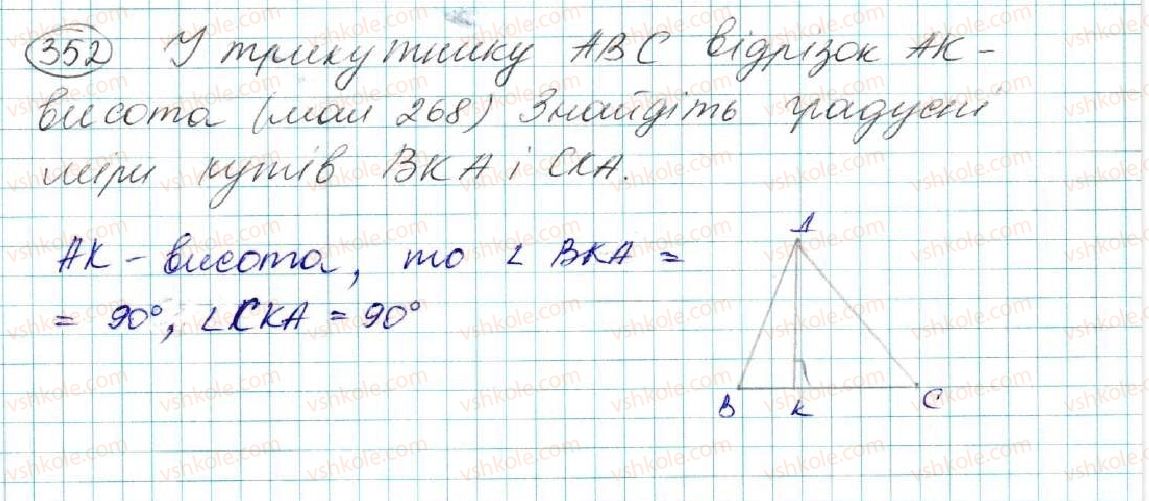 352 У трикутнику ABC відрізок AK -
висота (мал 268) Знайдіть градусні
міри кутів BKA і CKA.
AK - висота, то ∠ BKA =
= 90°, ∠CKA = 90°
A
B K C
vshkole.com